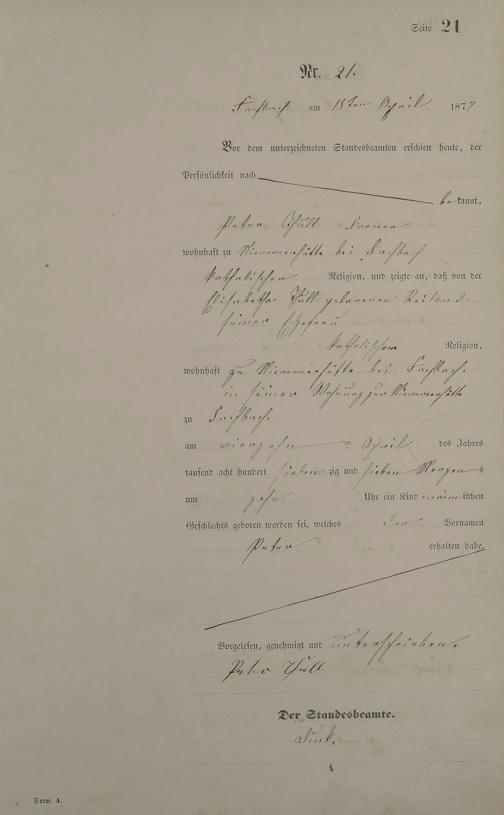 Seite 21
Nr. 21.
Fachbach am 18ten April 1877
Vor dem unterzeichneten Standesbeamten erschien heute, der
Persönlichkeit nach
be kannt,
Peter Thull
wohnhaft zu Nievernerhütte bei Fachbach
katholischer Religion, und zeigte an, daß von der
Elisabetha Thull geborenen Reiland
seiner Ehefrau
katholischer Religion,
wohnhaft zu Nievernerhütte bei Fachbach
in seiner Wohnung zur Nievernerhütte
zu Fachbach
am vierzehn ten April des Jahres
tausend acht hundert sieben zig und sieben Morgen s
um zehn Uhr ein Kind männ lichen
Geschlechts geboren worden sei, welches den Vornamen
Peter erhalten habe.
Vorgelesen, genehmigt und unterschrieben.
Peter Thull
Der Standesbeamte.
Form. A.